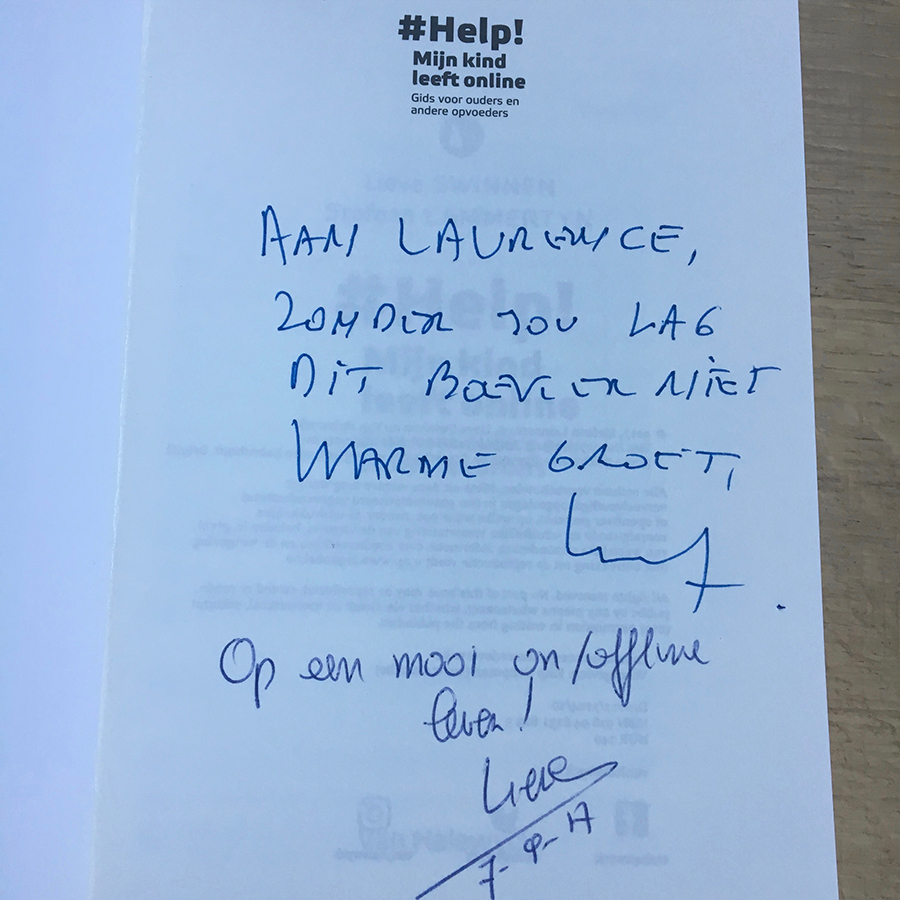 #Help!
Mijn kind
leeft online
Gids voor ouders en
andere opvoeders
AAN LAURENCE,
ZONDER JOU LAG
DIT BOEK ER NIET
WARME GROET,
Op een mooi on/offline
leven!
Lieve
7-9-17